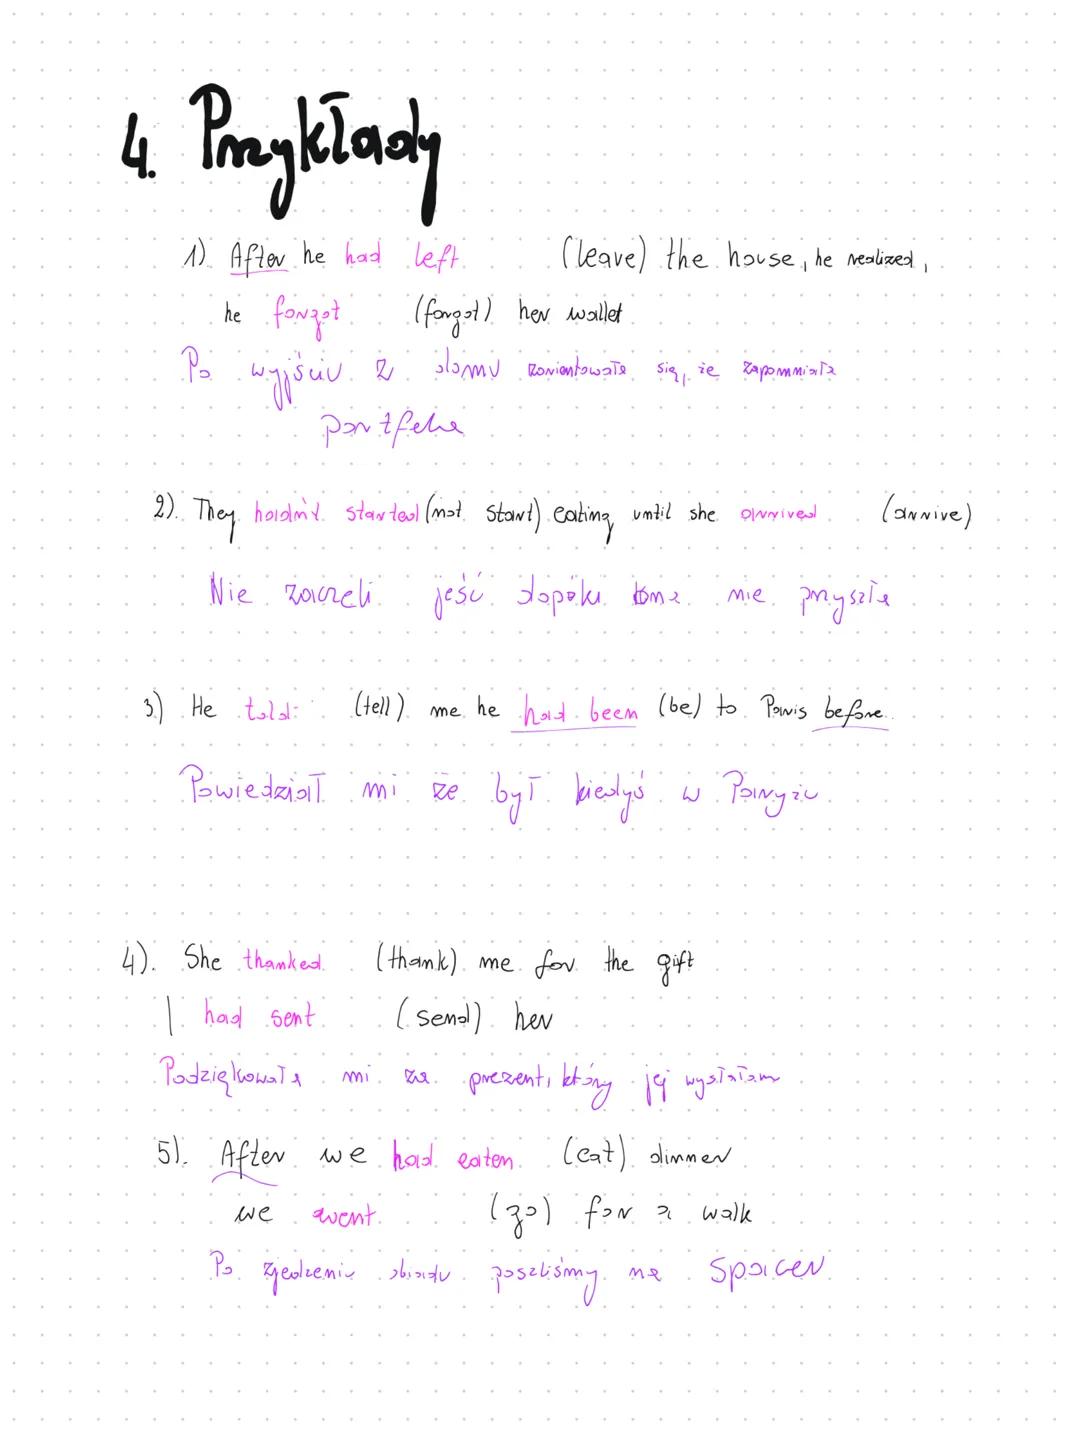 4. Przykłady
1). After he had left (leave) the house, he realized,
he forgot (forgot) her wallet
Po wyjściu z domu zorientowała się, że zapomniała
portfela
2). They hadn't started (not start) eating until she arrived (arrive)
Nie zaczęli jeść dopóki ona nie przyszła
3) He told (tell) me he had been (be) to Paris before.
Powiedział mi że był kiedyś w Paryżu.
4). She thanked (thank) me for the gift
I had sent (send) her
Podziękowała mi za prezent, który jej wysłałam
5). After we had eaten (eat) dinner
we went (go) for a walk
Po zjedzeniu obiadu poszliśmy na spacer